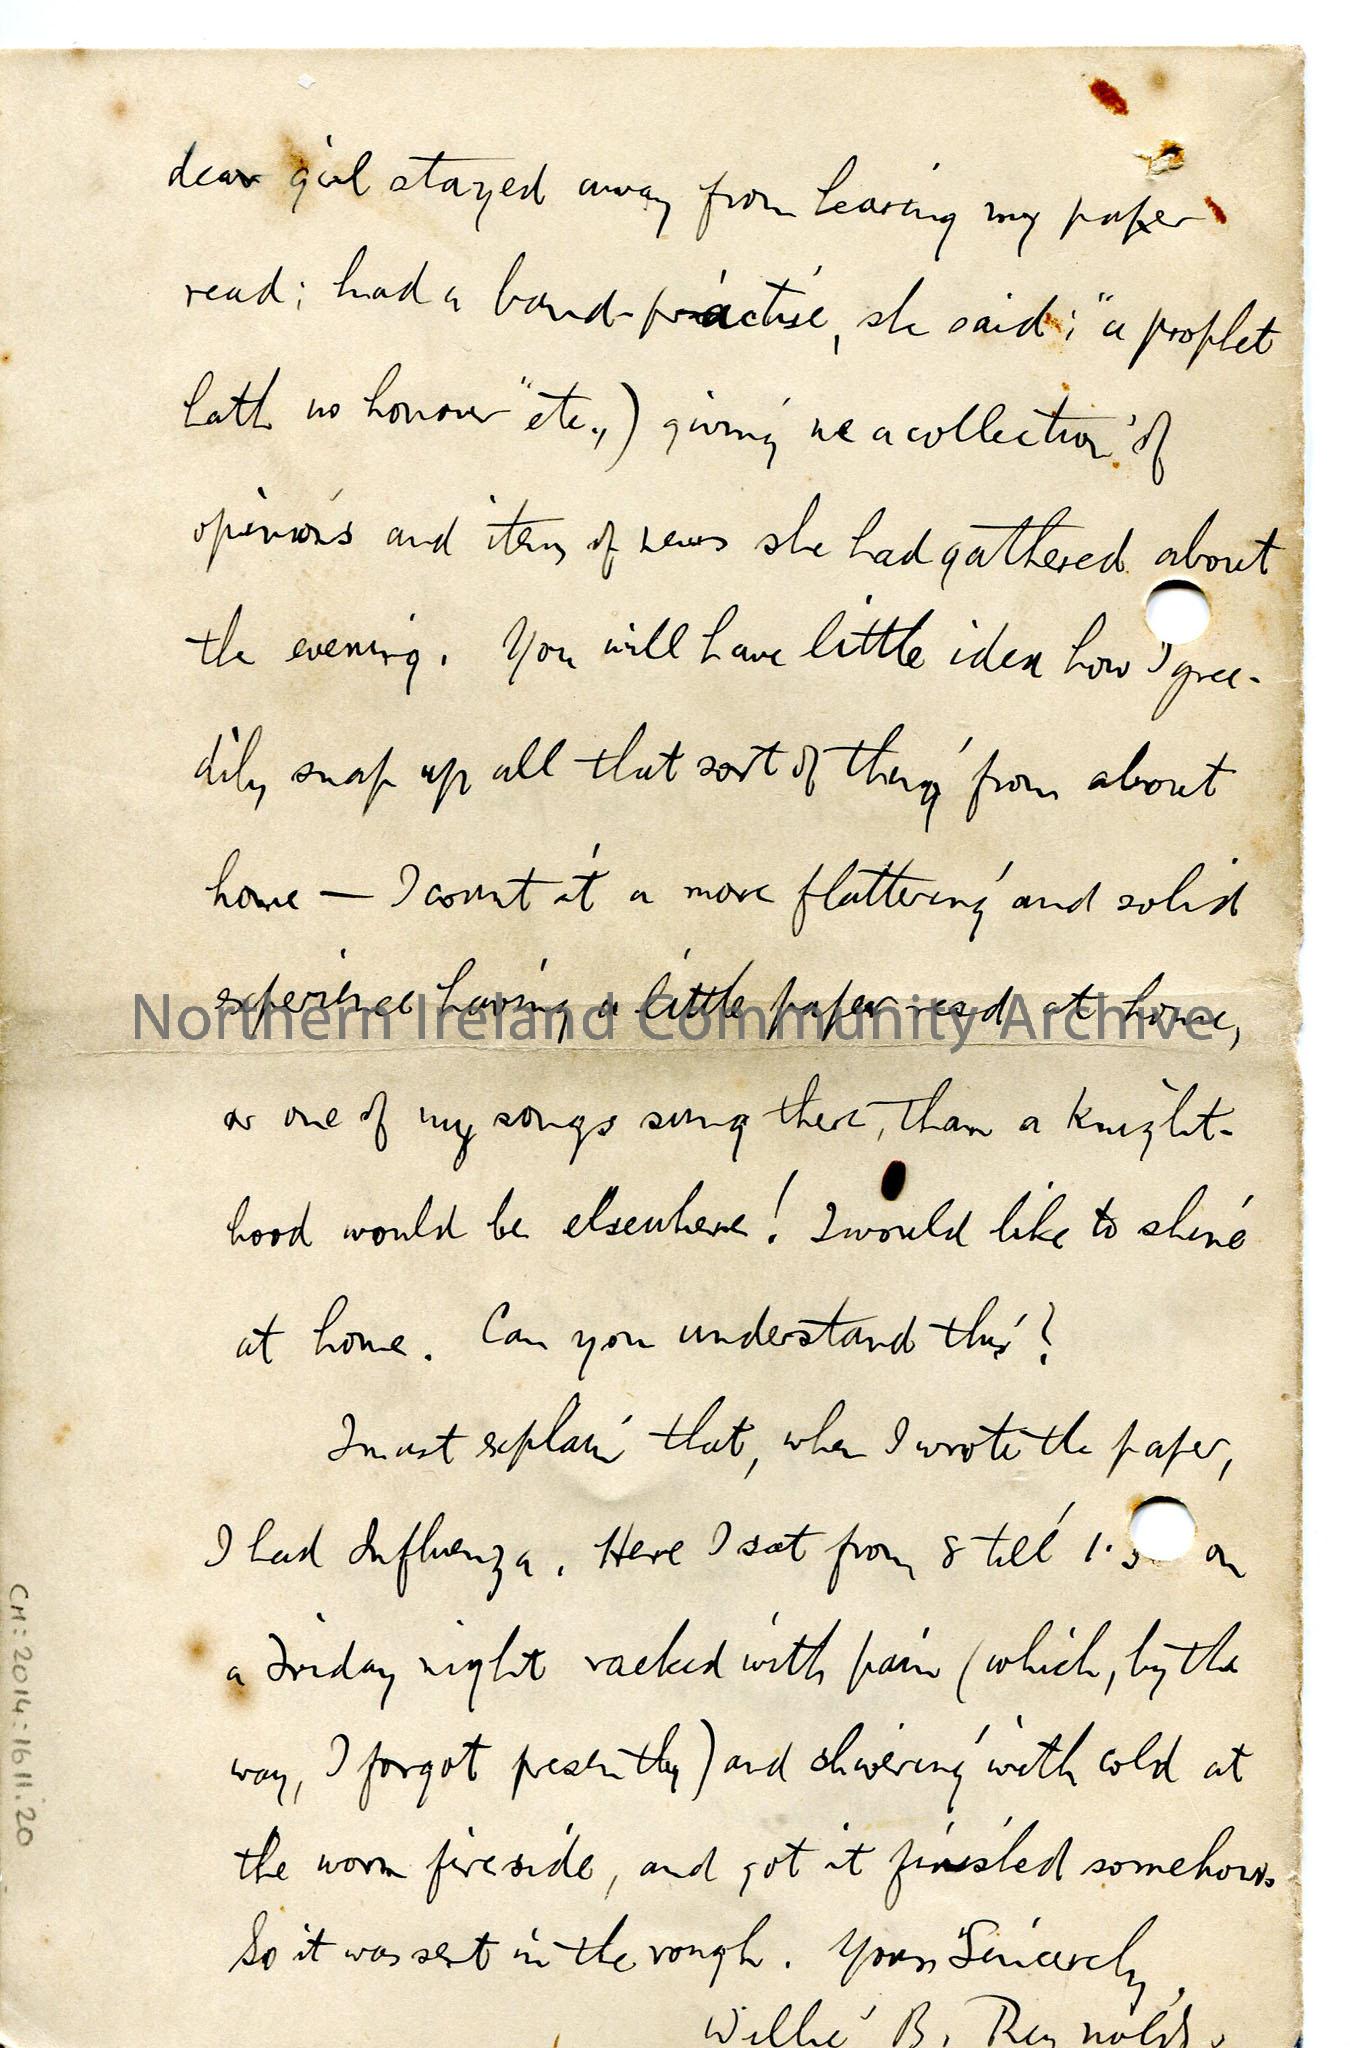 dear girl stayed away from hearing my paper
read; had a band-practise, she said; "a prophet
hath no honour" etc.,) giving me a collection of
opinions and items of news she had gathered about
the evening. You will have little idea how I gree-
dily snap up all that sort of thing from about
home — I count it a more flattering and solid
experience having a little paper read at home,
or one of my songs sung there, than a Knight-
hood would be elsewhere! I would like to shine
at home. Can you understand this?
I must explain that, when I wrote the paper,
I had Influenza. Here I sat from 8 till 1.3 on
a Friday night racked with pain (which, by the
way, I forgot presently) and shivering with cold at
the worm fireside, and got it finished somehow.
So it was sent in the rough. Yours Sincerely,
Willie B. Reynolds.
Northern Ireland Community Archive
CM:2014:1611.20